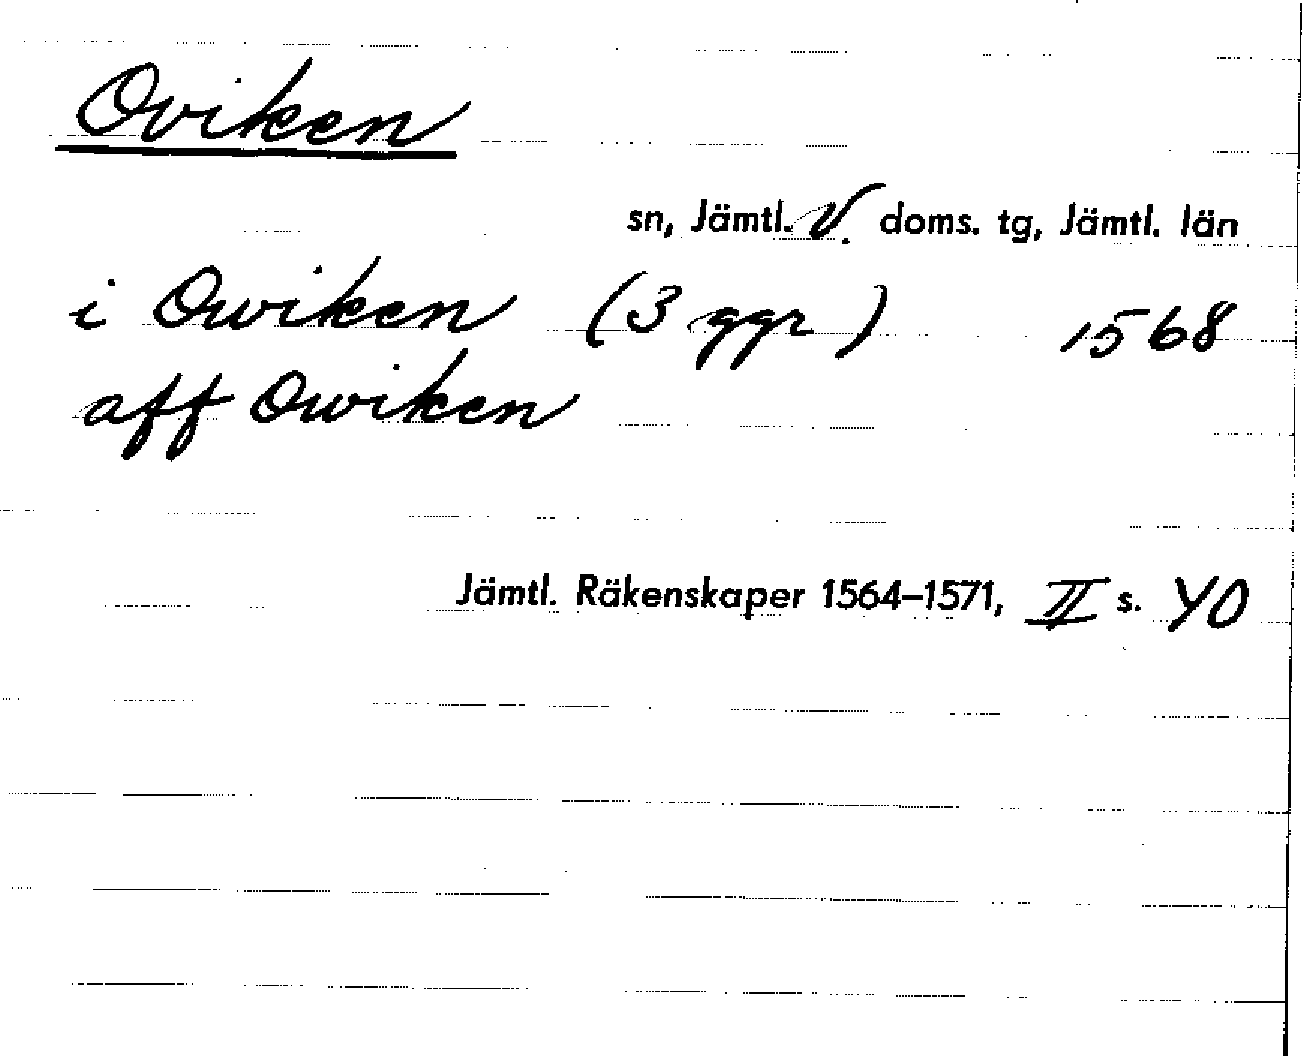 Oviken
sn, Jämtl. V. doms. tg, Jämtl. län
i Owiken (3 ggr) 1568
aff Owiken
Jämtl. Räkenskaper 1564–1571, II s. 40